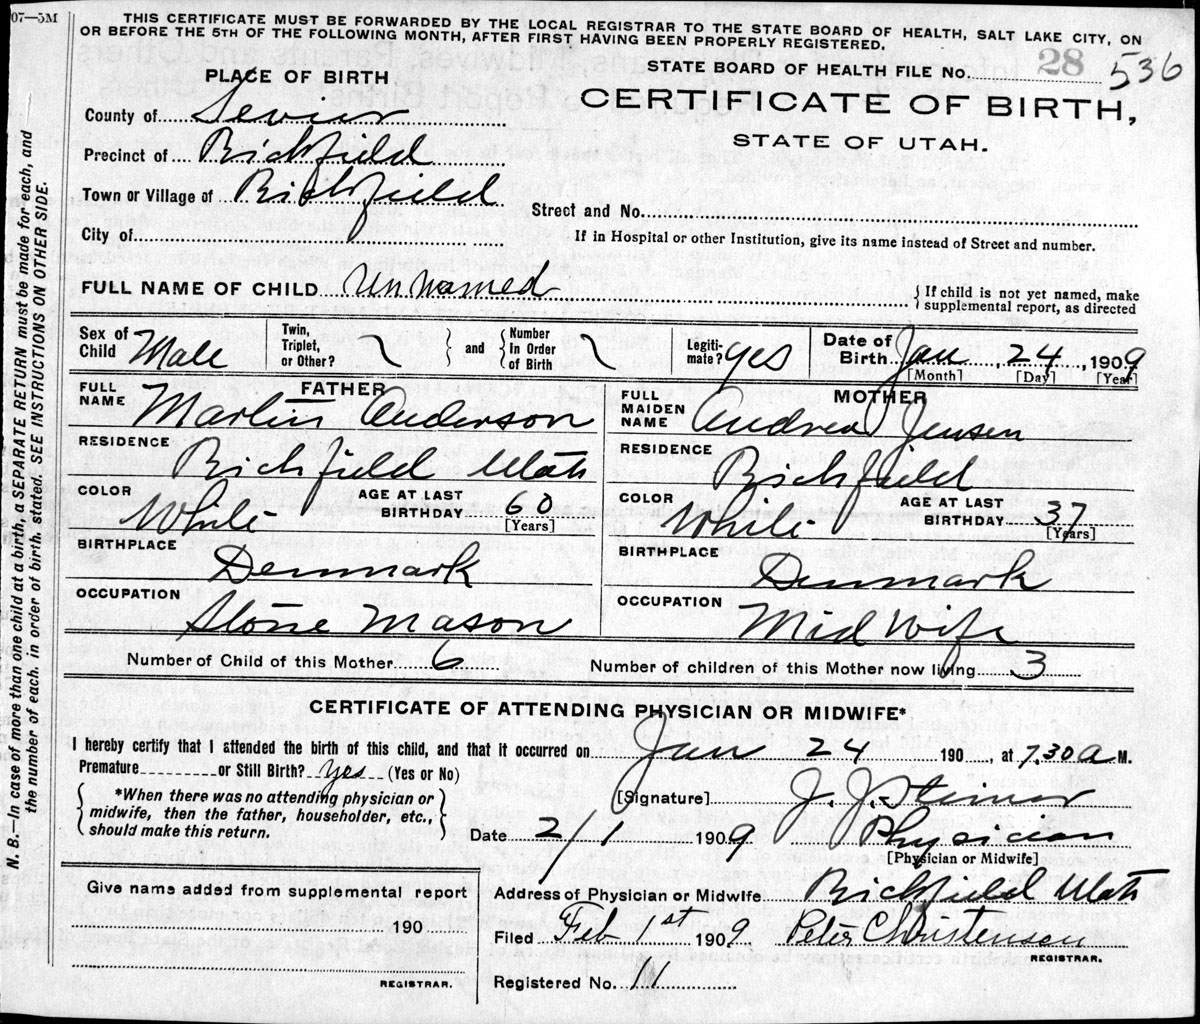 07—5M
THIS CERTIFICATE MUST BE FORWARDED BY THE LOCAL REGISTRAR TO THE STATE BOARD OF HEALTH, SALT LAKE CITY, ON
OR BEFORE THE 5TH OF THE FOLLOWING MONTH, AFTER FIRST HAVING BEEN PROPERLY REGISTERED.
STATE BOARD OF HEALTH FILE No. 28 536
PLACE OF BIRTH
CERTIFICATE OF BIRTH,
STATE OF UTAH.
County of Sevier
Precinct of Richfield
Town or Village of Richfield
Street and No.
City of
If in Hospital or other Institution, give its name instead of Street and number.
FULL NAME OF CHILD Unnamed { If child is not yet named, make
supplemental report, as directed
Sex of Child Male Twin, Triplet, or Other? } and { Number In Order of Birth Legiti-mate? yes Date of Birth Jan, 24, 1909
[Month] [Day] [Year]
FATHER
FULL NAME Martin Anderson
RESIDENCE
Richfield Utah
COLOR White AGE AT LAST BIRTHDAY 60
[Years]
BIRTHPLACE
Denmark
OCCUPATION
Stone Mason
MOTHER
FULL MAIDEN NAME Andrea Jensen
RESIDENCE
Richfield
COLOR White AGE AT LAST BIRTHDAY 37
[Years]
BIRTHPLACE
Denmark
OCCUPATION
Mid Wife
Number of Child of this Mother 6 Number of children of this Mother now living 3
CERTIFICATE OF ATTENDING PHYSICIAN OR MIDWIFE*
I hereby certify that I attended the birth of this child, and that it occurred on Jan 24 190 , at 7.30 a M.
Premature or Still Birth? yes (Yes or No)
{ *When there was no attending physician or
midwife, then the father, householder, etc.,
should make this return. }
[Signature] J. J. Steiner
Date 2/1 1909 Physician
[Physician or Midwife]
Give name added from supplemental report
190
REGISTRAR.
Address of Physician or Midwife Richfield Utah
Filed Feb 1st 1909 Peter Christensen
REGISTRAR.
Registered No. 11
N. B.—In case of more than one child at a birth, a SEPARATE RETURN must be made for each, and
the number of each, in order of birth, stated. SEE INSTRUCTIONS ON OTHER SIDE.